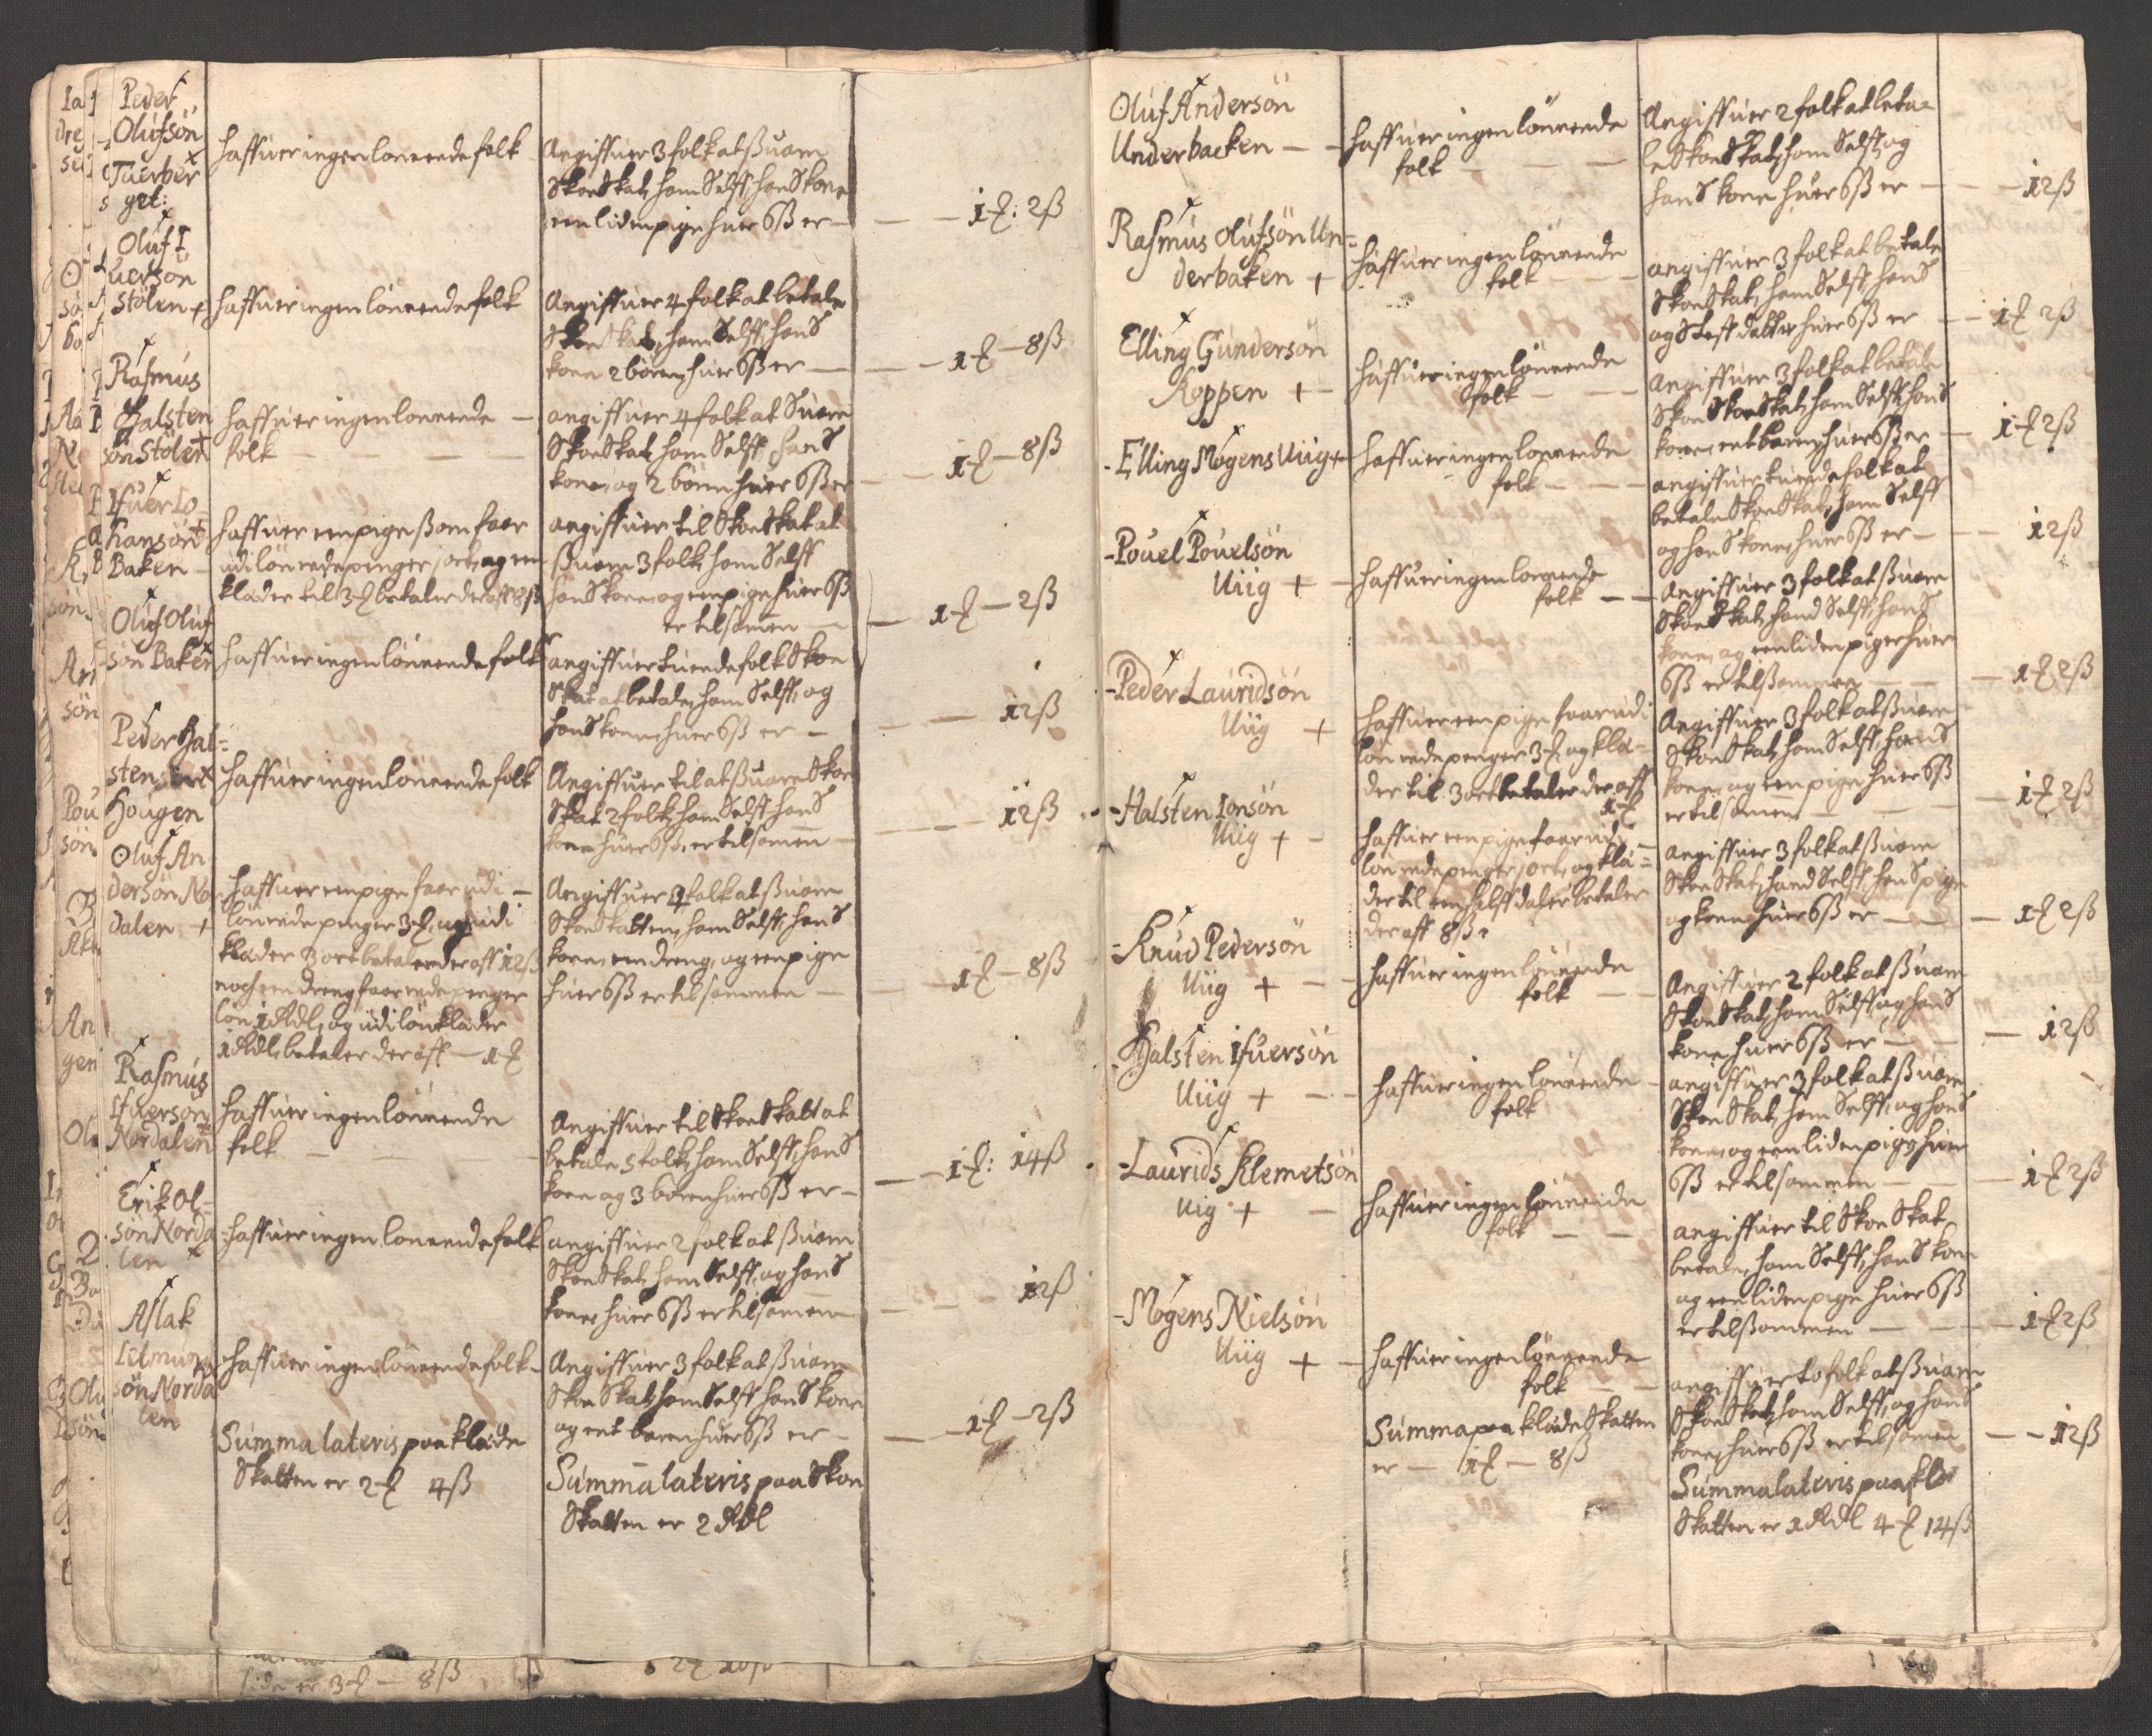 Peder
Olufsön
Tuerber
get:
haffuer ingen lonnende folk
Angiffuer 3 folk at ßuare
Skoe Skat, ham Selff, hans kone
een liden pige huer 6ß er —
— — 1 ℳ: 2ß
Oluf I
uersön
Stölen +
haffuer ingen lönnende folk
Angiffuer 4 folk at betale
Skoe Skat, ham Selff, hans
kone 2 børen, huer 6ß er —
— — 1 ℳ — 8ß
Rasmus
Halsten
sön Stölen
haffuer ingen lonnende —
folk — —
angiffuer 4 folk at Suare
Skoe Skat ham Selff, hans
kone, og 2 börn huer 6ß er
— 1 ℳ — 8ß
Ifuer Io-
hansön +
Baken —
haffuer een pige ßom faar
udi lön rede penger 1 ort, og een
klæder til 3 ℳ betaler der aff 8ß
angiffuer til Skoe Skat at
ßuare 3 folk, ham Selff
hans kone, og een pige huer 6ß
er tilsamen —
— 1 ℳ — 2ß
Oluf Oluf
sön Baken
haffuer ingen lönnende folk
angiffuer tuende folk Skoe
Skat at betale, ham Selff, og
hans kone, huer 6ß er —
— — 12ß
Peder Hal=
sten
Hougen
haffuer ingen lönnende folk
Angiffuer til at ßuare Skoe
Skat 2 folk, ham Selff hans
kone huer 6ß, er tilsamen —
— — 12ß
Oluf An
dersön No
dalen +
haffuer een pige faar udi —
lön rede penger 3 ℳ, og udi
klæder 3 ort betaler der aff 12ß
noch een dreng faar rede penger
lön 1 Rdl, og udi lön klæder
1 Rdl, betaler der aff — 1 ℳ
Angiffuer 4 folk at ßuare
Skoe Skatten, ham Selff, hans
kone, een dreng, og een pige
huer 6ß er tilsammen —
— 1 ℳ — 8ß
Rasmus
Ifuersön
Nordalen
haffuer ingen lönnende
folk — —
Angiffuer til Skoe Skatt at
betale 5 folk, ham Selff, hans
kone og 3 børen huer 6ß er —
— 1 ℳ: 14ß
Erik Ol-
sön Norda
len
haffuer ingen lonnende folk
angiffuer 2 folk at ßuare
Skoe Skat, ham Selff, og hans
kone, huer 6ß er tilsamen
— — 12ß
Aslak
sön Norda
len
haffuer ingen lönnende folk —
Angiffuer 3 folk at ßuare
Skoe Skat, ham Selff hans kone
og ent baren huer 6ß er —
— — 1 ℳ — 2ß
Summa lateris paa klæde
Skatten er 2 ℳ 4ß
Summa lateris paa Skoe
Skatten er 2 Rdl
Oluf Andersön
Underbacken — —
haffuer ingen lönnende
folk — —
Angiffuer 2 folk at beta=
le Skoe Skat, ham Selff, og
hans kone huer 6ß er —
— — 12ß
Rasmus Olufsön Un=
derbaken +
haffuer ingen lönnende
folk — —
angiffuer 3 folk at betale
Skoe Skat, ham Selff, hans
og Steff datter huer 6ß er
— 1 ℳ 2ß
Elling Gundersön
Roppen + —
haffuer ingen lönnende
folk — —
Angiffuer 3 folk at betale
Skoe Skat, ham Selff, hans
kone, ent baren, huer 6ß er
— 1 ℳ 2ß
- Elling Mogens Uiig +
haffuer ingen lonnende
folk — —
angiffuer tuende folk at
betale Skoe Skat, ham Selff
og hans kone, huer 6ß er —
— — 12ß
- Pouel Pouelsön
Uiig + —
haffuer ingen lonnende
folk — —
Angiffuer 3 folk at ßuare
Skoe Skat, hand Selff, hans
kone, og een liden pige huer
6ß er tilßammen —
— 1 ℳ 2ß
- Peder Lauridsön
Uiig +
haffuer een pige faar udi
lön rede penger 3 ℳ, og klæ-
der til 3 ort betaler der aff
1 ℳ
Angiffuer 3 folk at ßuare
Skoe Skat, ham Selff, hans
kone, og een pige huer 6ß
er tilsamen —
— 1 ℳ 2ß
- Halsten Ionsön
Uiig + —
haffuer een pige faar udi
lön rede penge 1 ort, og klæ=
der til een halff daler betaler
der aff 8ß
angiffuer 3 folk at ßuare
Skoe Skat, hand Selff, hans pige
og kone huer 6ß er —
— 1 ℳ 2ß
- Knud Pedersön
Uiig + —
haffuer ingen lönnende
folk — —
Angiffuer 2 folk at ßuare
Skoe Skat, ham Selff, og hans
kone, huer 6ß er —
— 12ß
Halsten Ifuersön
Uiig + —
haffuer ingen lönnende
folk
angiffuer 3 folk at ßuare
Skoe Skat, ham Selff, og hans
kone, og een liden pige, huer
6ß er tilsammen —
— 1 ℳ 2ß
- Laurids Klemetsön
Uig + —
haffuer ingen lönnende
folk — —
angiffuer til Skoe Skat
betale, ham Selff, hans kone
og een liden pige huer 6ß
er tilßammen —
— 1 ℳ 2ß
- Mogens Nielsön
Uiig + —
haffuer ingen lönnende
folk — —
angiffuer to folk at ßuare
Skoe Skat, ham Selff, og hans
kone, huer 6ß er tilsamen
— — 12ß
Summa paa klæde Skatten
er — 1 ℳ — 8ß
Summa lateris paa klæ
Skatten er 1 Rdl 4 ℳ 14ß